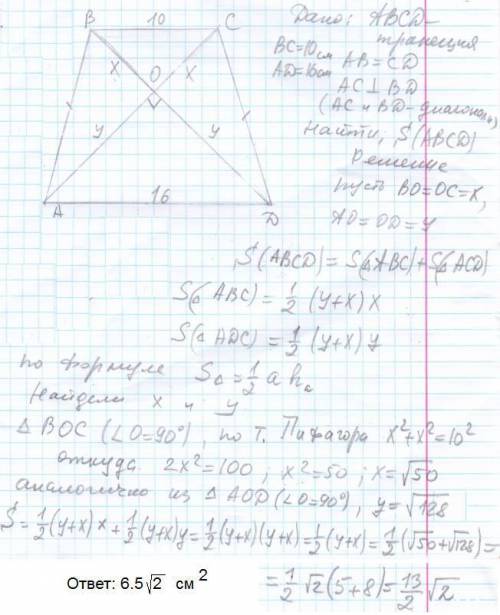 B 10 C
X O X
y y
A 16 D
Дано: ABCD-
трапеция
BC=10см
AD=16см
AB=CD
AC⊥BD
(AC и BD-диагонали)
Найти: S(ABCD)
Решение
Пусть BO=OC=X,
AO=OD=y
S(ABCD)=S(△ABC)+S(△ACD)
S(△ABC)=½(y+x)x
S(△ADC)=½(y+x)y
по формуле S△=½ a hₐ
Найдем x и y
△BOC (∠O=90°), по т. Пифагора x²+x²=10²
откуда 2x²=100; x²=50; x=√50
аналогично из △AOD(∠O=90°), y=√128
S=½(y+x)x+½(y+x)y=½(y+x)(y+x)=½(y+x)=½(√50+√128)=
=½√2(5+8)=13/2√2
Ответ: 6.5√2 см²